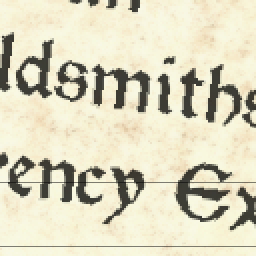 ldsmiths
rency Ex